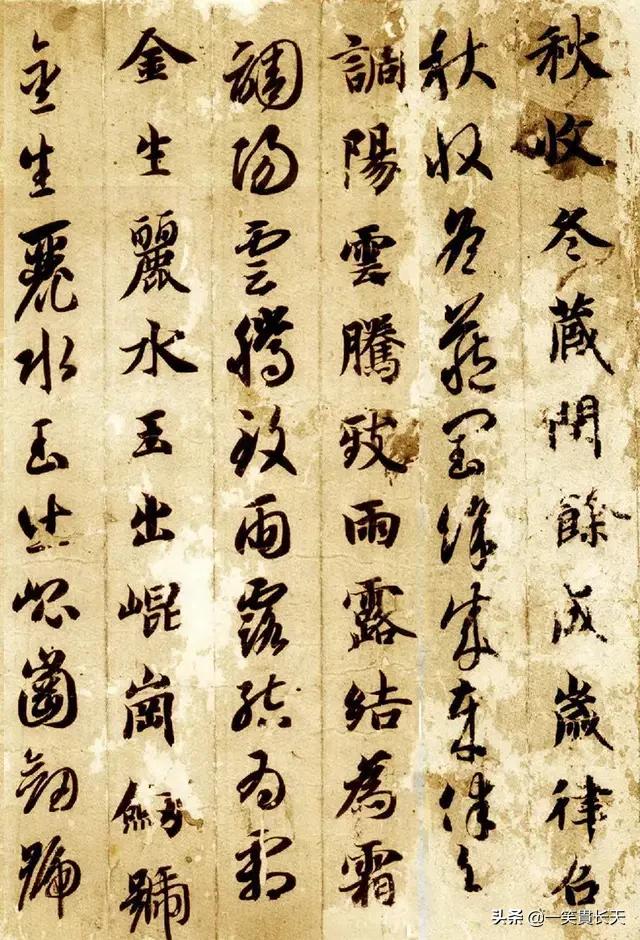 秋收冬藏閏餘成歲律召
秋收冬藏閏餘成歲律召
調陽雲騰致雨露結為霜
調陽雲騰致雨露結為霜
金生麗水玉出崐崗劍號
金生麗水玉出崐崗劍號
头条 @一笑貫长天